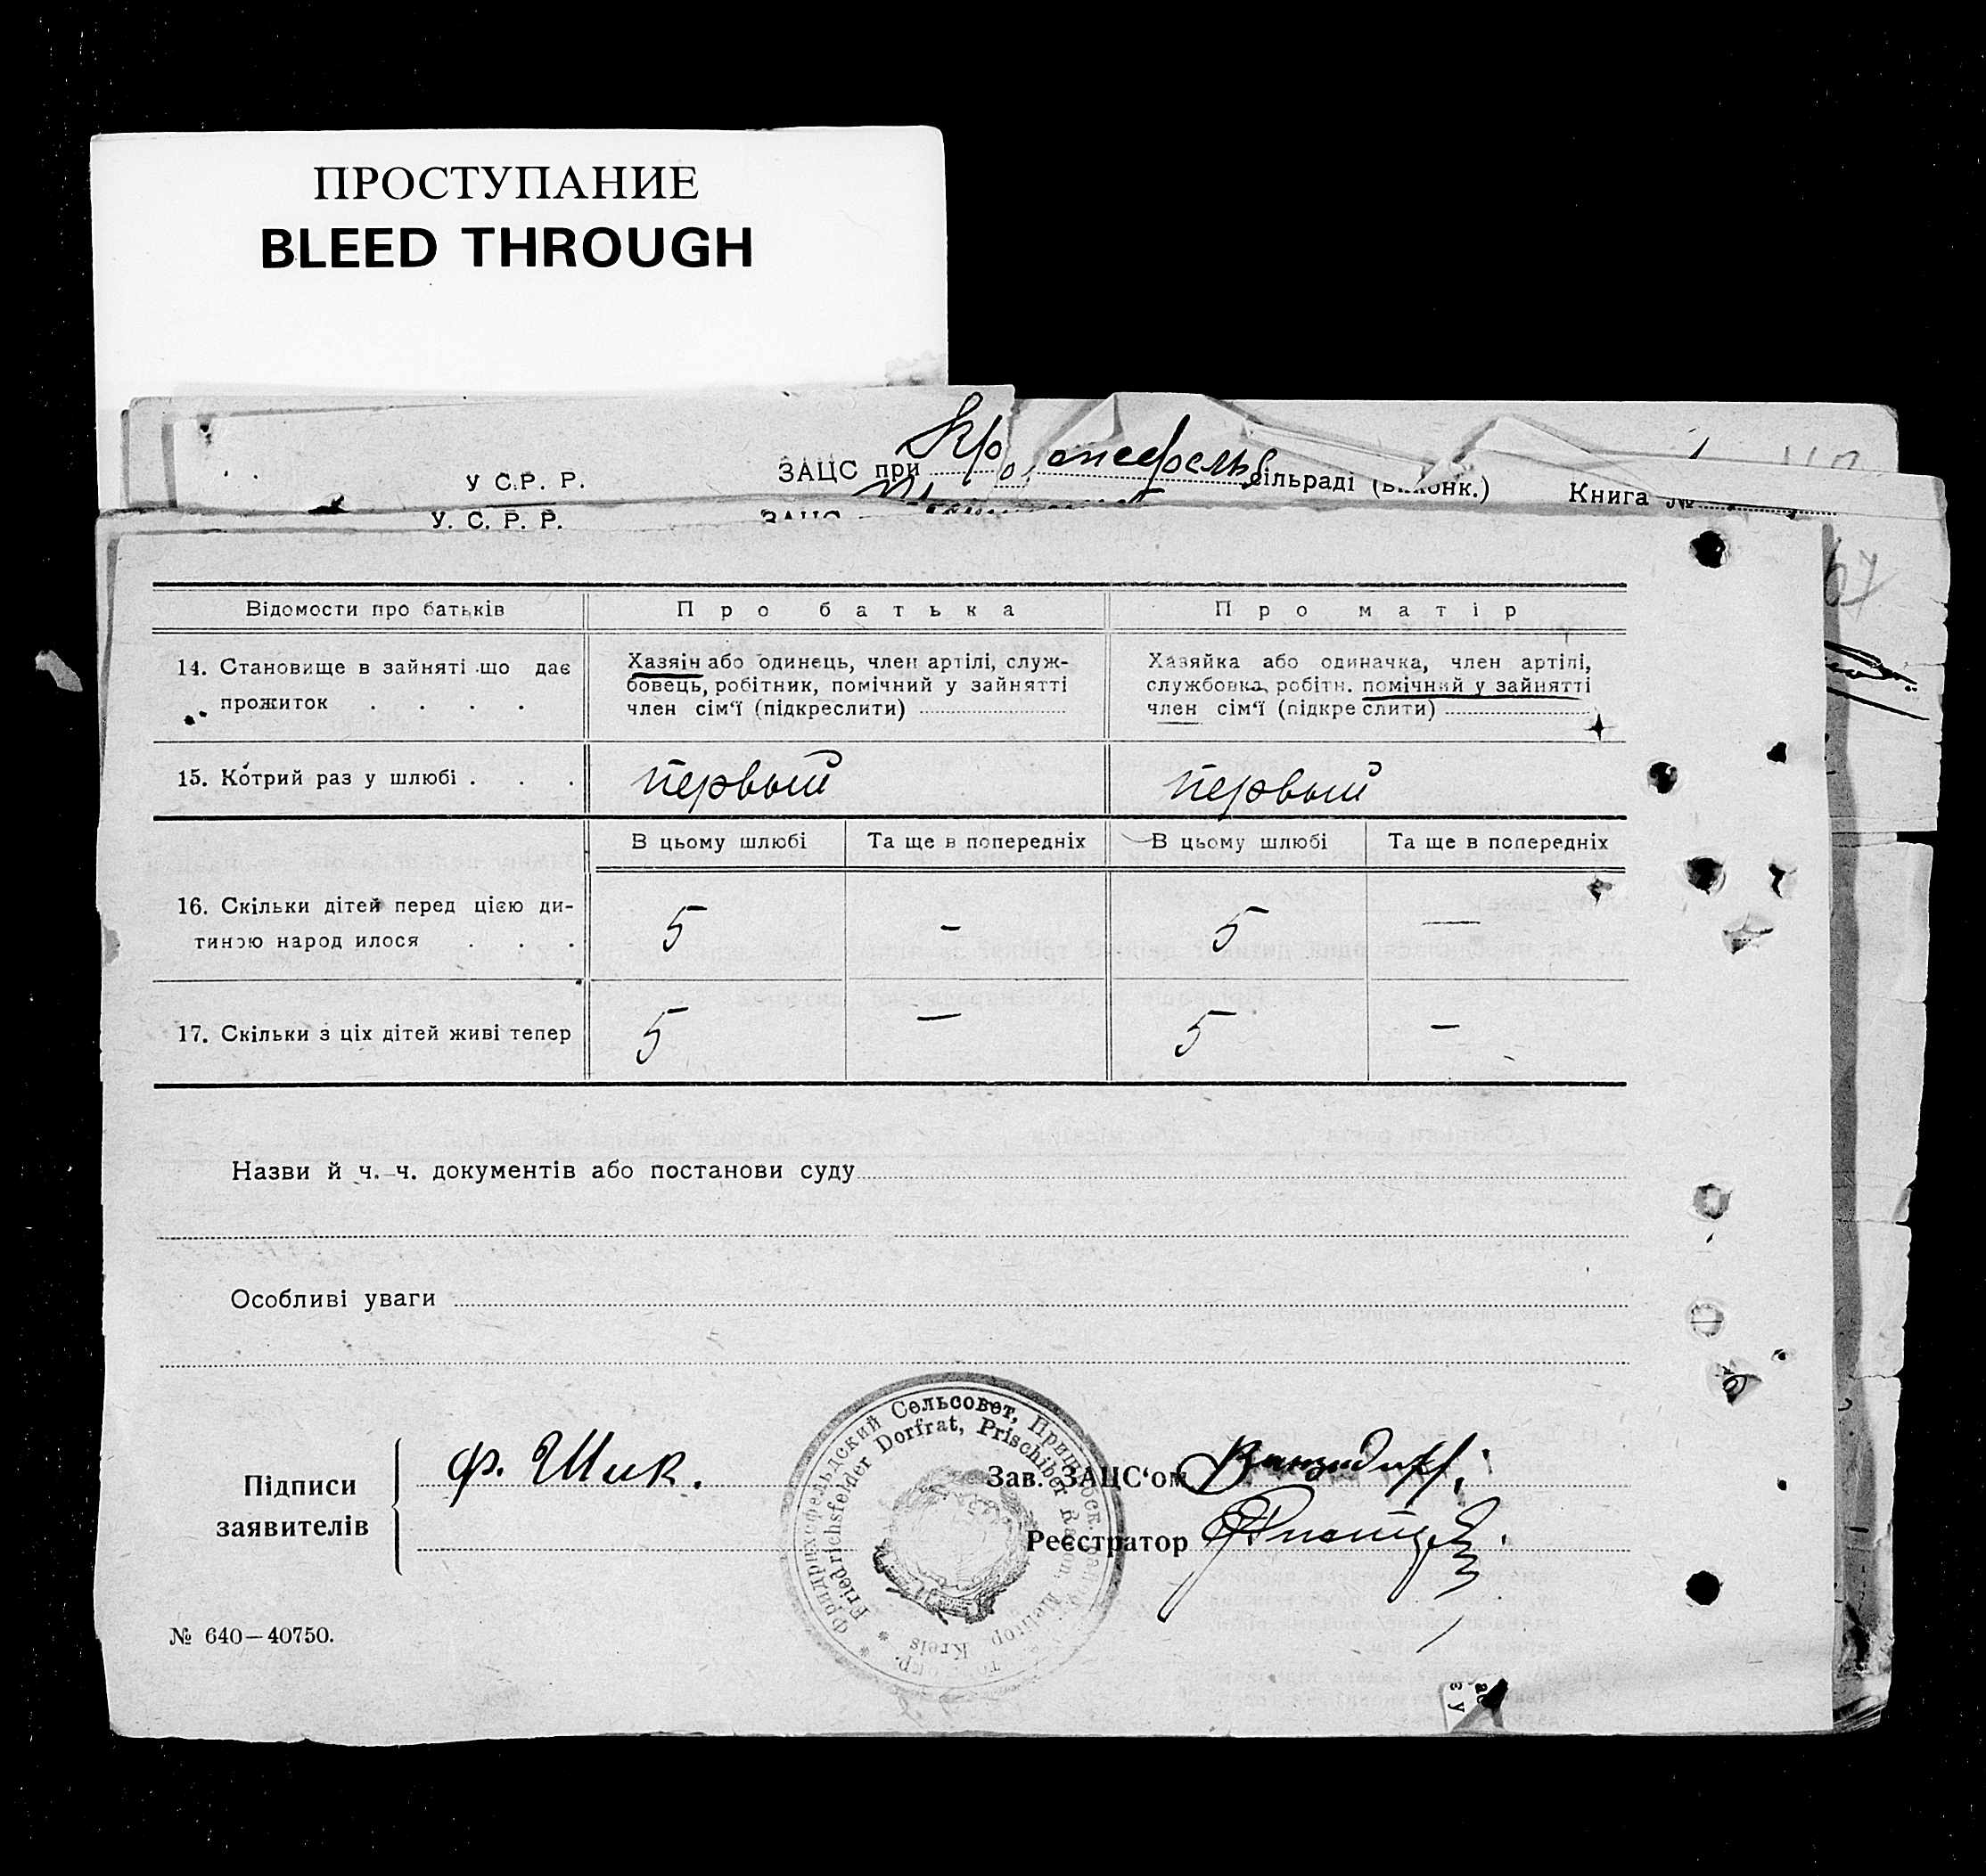 ПРОСТУПАНИЕ
BLEED THROUGH
У С.Р. Р. ЗАЦС при сільраді (виконк.) Книга №
У. С. Р. Р. ЗАЦС
Відомости про батьків Про батька Про матір
14. Становище в зайняті що дає Хазяін або одинець, член артілі, служ- Хазяйка або одиначка, член артілі,
прожиток . . . . бовець, робітник, помічний у зайнятті службовка, робітн. помічний у зайнятті
член сім'ї (підкреслити) член сім'ї (підкреслити)
15. Котрий раз у шлюбі . . . первый первый
В цьому шлюбі Та ще в попередніх В цьому шлюбі Та ще в попередніх
16. Скільки дітей перед цією ди- 5 - 5 —
тиною народилося . . .
17. Скільки з ціх дітей живі тепер 5 — 5 -
Назви й ч. ч. документів або постанови суду
Особливі уваги
Підписи
заявителів
Ф. Шик.
Зав. ЗАЦС'ом
Реєстратор
Фридрихсфельдский Сельсовет,
Friedrichsfelder Dorfrat, Prischiber Rayon, Melitop. Kreis
№ 640—40750.